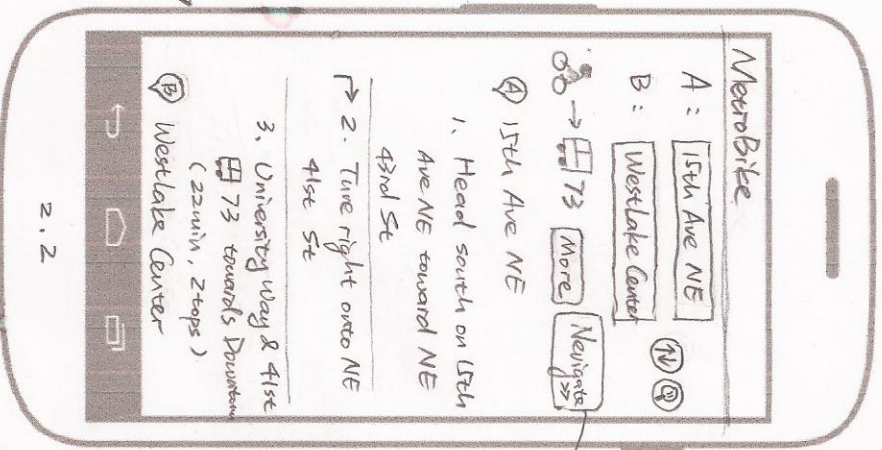 MetroBike
A : 15th Ave NE
B : Westlake Center
→ 73 More Nevigate >>
A 15th Ave NE
1. Head south on 15th
Ave NE toward NE
43rd St
2. Ture right onto NE
41st St
3. University Way & 41st
73 towards Downtown
(22min, 2tops)
B Westlake Center
2.2